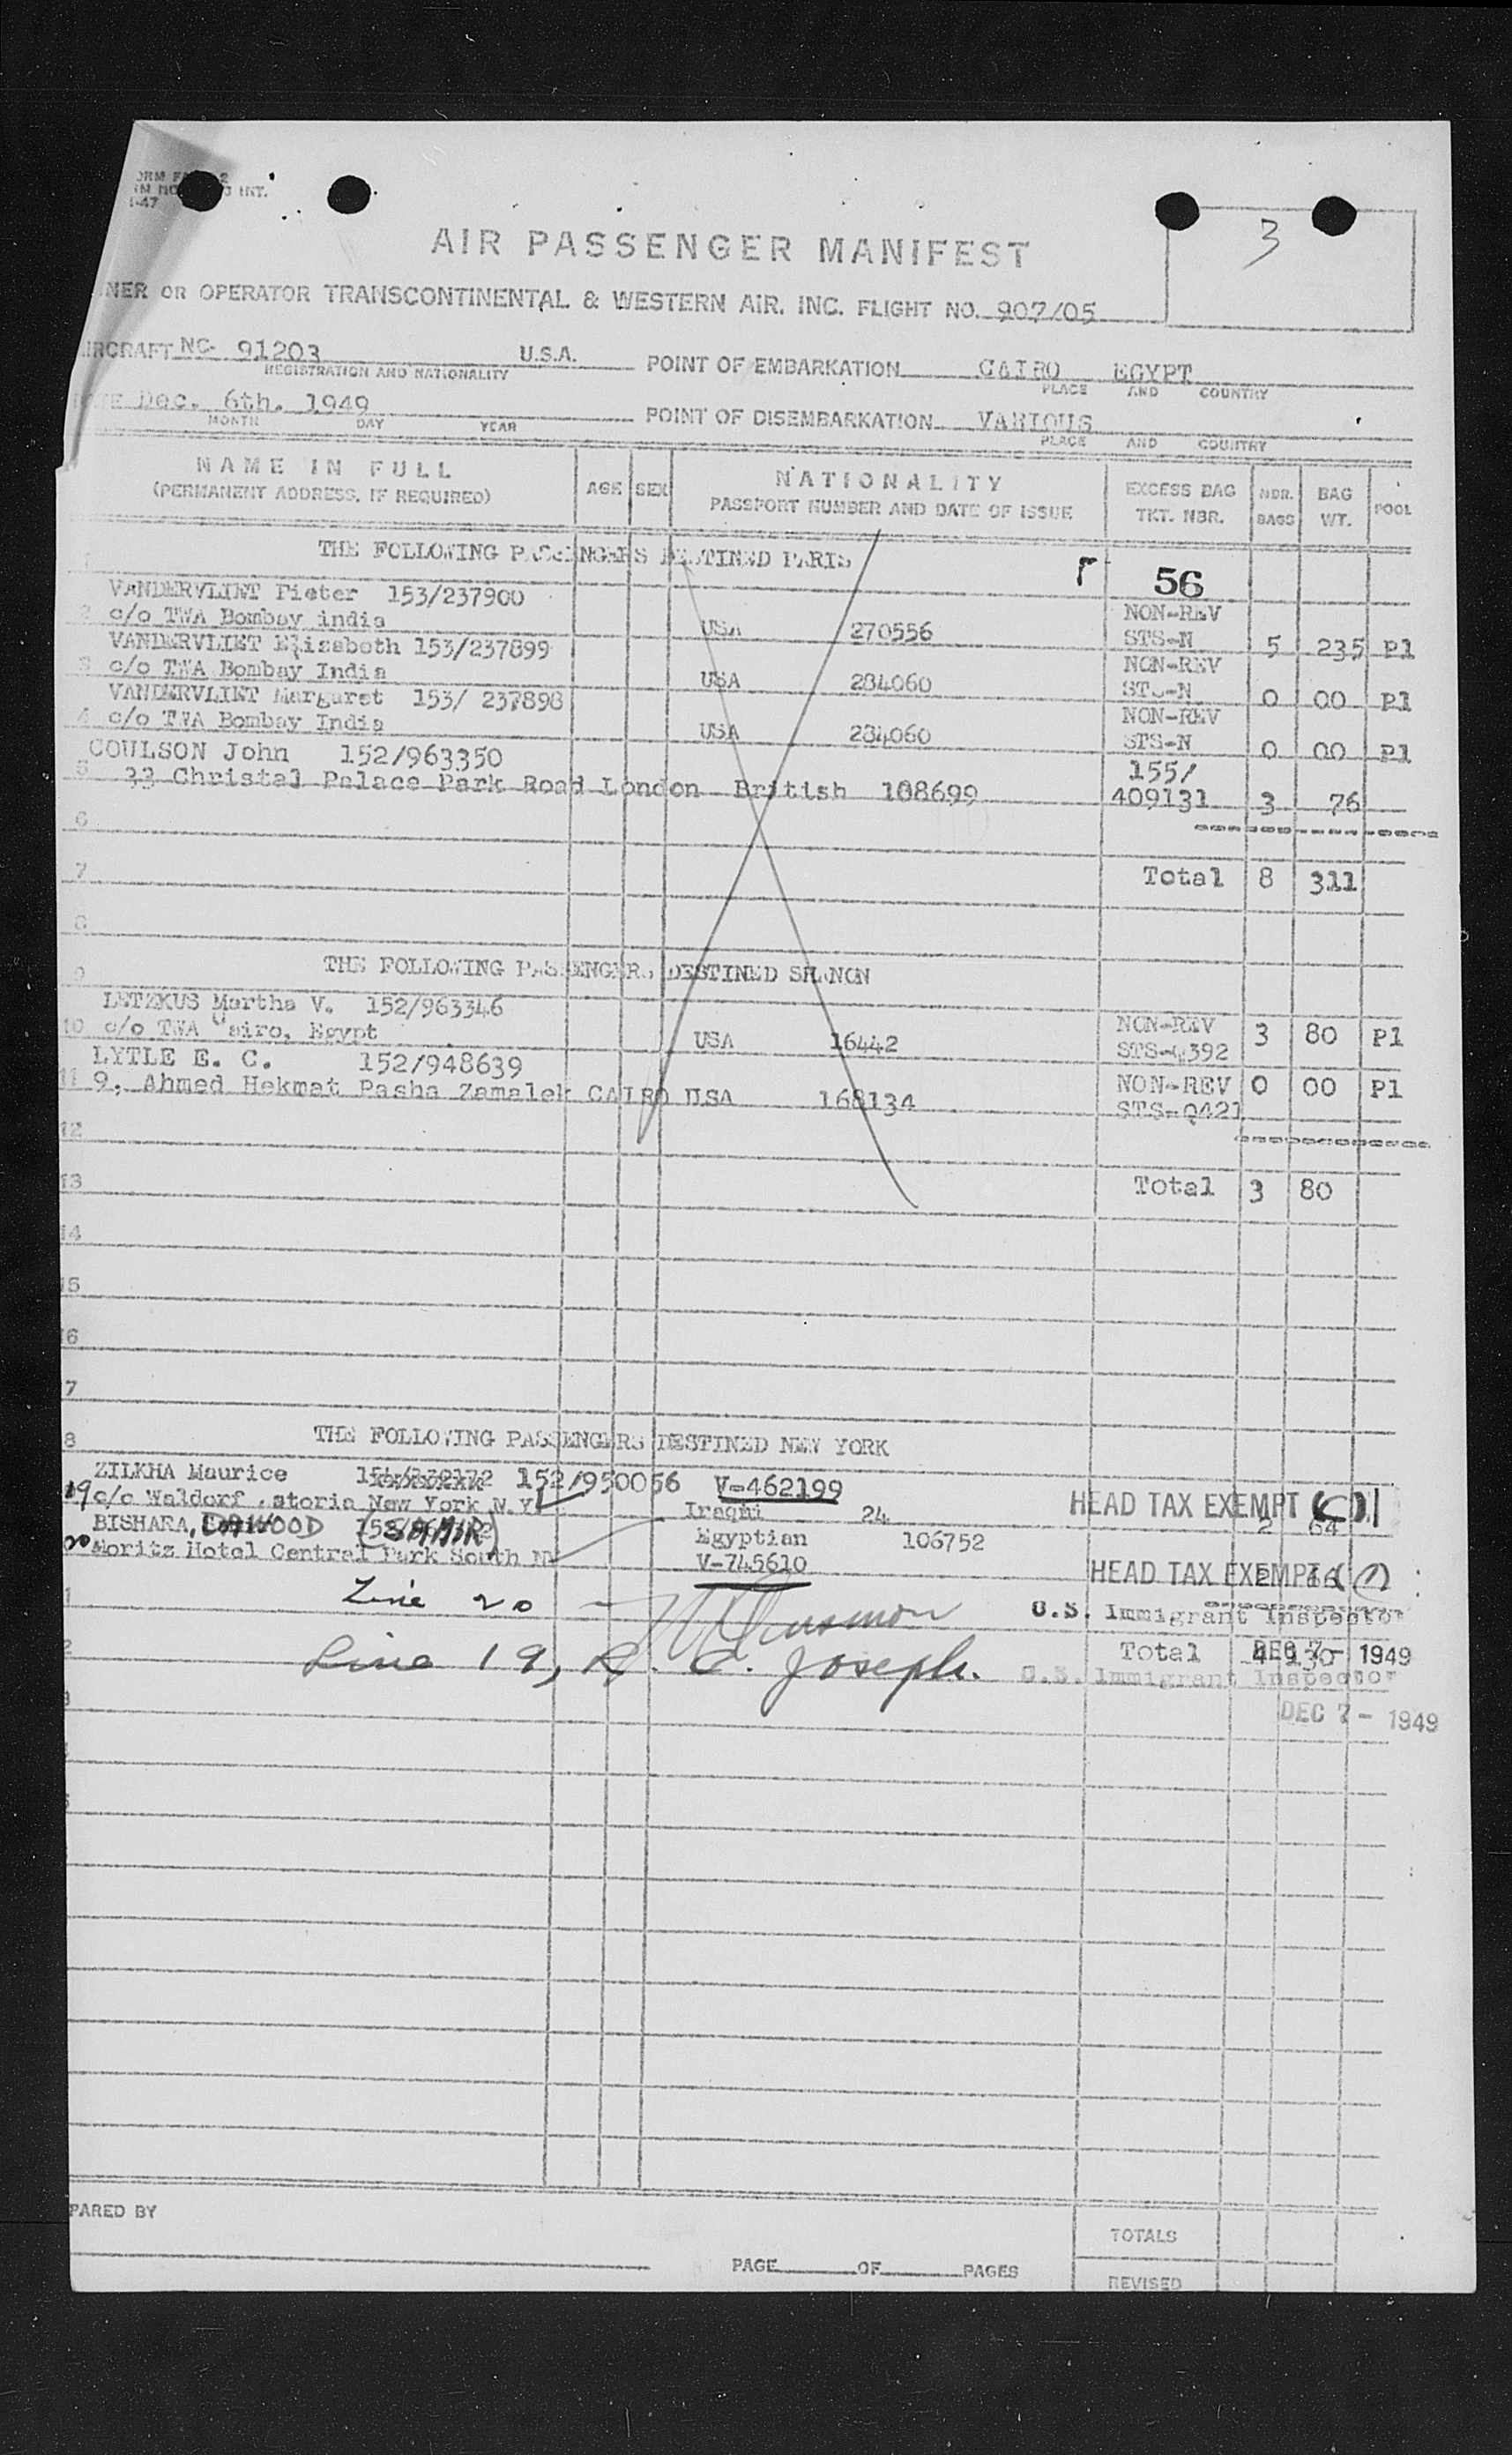 INT.
-47
3
AIR PASSENGER MANIFEST
NER OR OPERATOR TRANSCONTINENTAL & WESTERN AIR. INC. FLIGHT NO. 907/05
IRCRAFT NC- 91203 U.S.A. POINT OF EMBARKATION CAIRO EGYPT
REGISTRATION AND NATIONALITY PLACE AND COUNTRY
Dec. 6th. 1949 POINT OF DISEMBARKATION VARIOUS
MONTH DAY YEAR PLACE AND COUNTRY
NAME IN FULL AGE SEX NATIONALITY EXCESS BAG NBR. BAG POOL
(PERMANENT ADDRESS, IF REQUIRED) PASSPORT NUMBER AND DATE OF ISSUE TKT. NBR. BAGS WT.
THE FOLLOWING PASSENGERS DESTINED PARIS
56
VANDERVLIET Pieter 153/237900 NON-REV
2 c/o TWA Bombay india USA 270556 STS-N 5 235 P1
VANDERVLIET Elizabeth 153/237899 NON-REV
3 c/o TWA Bombay India USA 284060 STS-N 0 00 P1
VANDERVLIET Margaret 153/ 237898 NON-REV
4 c/o TWA Bombay India USA 284060 STS-N 0 00 P1
COULSON John 152/963350 155/
5 33 Christal Palace Park Road London British 108699 409131 3 76
6
7 Total 8 311
8
9 THE FOLLOWING PASSENGERS DESTINED SHANON
LETZKUS Martha V. 152/963346 NON-REV 3 80 P1
10 c/o TWA Cairo, Egypt USA 16442 STS-Q392
LYTLE E. C. 152/948639 NON-REV 0 00 P1
11 9, Ahmed Hekmat Pasha Zamalek CAIRO USA 168134 STS-Q421
12
13 Total 3 80
14
15
16
17
18 THE FOLLOWING PASSENGERS DESTINED NEW YORK
ZILKHA Maurice 152/950056 V-462199
19 c/o Waldorf Astoria New York N.Y. Iraqui 24 HEAD TAX EXEMPT 2 64
BISHARA, DAWOOD (SAMIR) Egyptian 106752
20 Moritz Hotel Central Park South NY V-745610 HEAD TAX EXEMPT 2 66
Line 20 U.S. Immigrant Inspector
Line 19, R. C. Joseph. Total 4 130 DEC 7 - 1949
U.S. Immigrant Inspector
DEC 7 - 1949
PARED BY
TOTALS
PAGE OF PAGES
REVISED